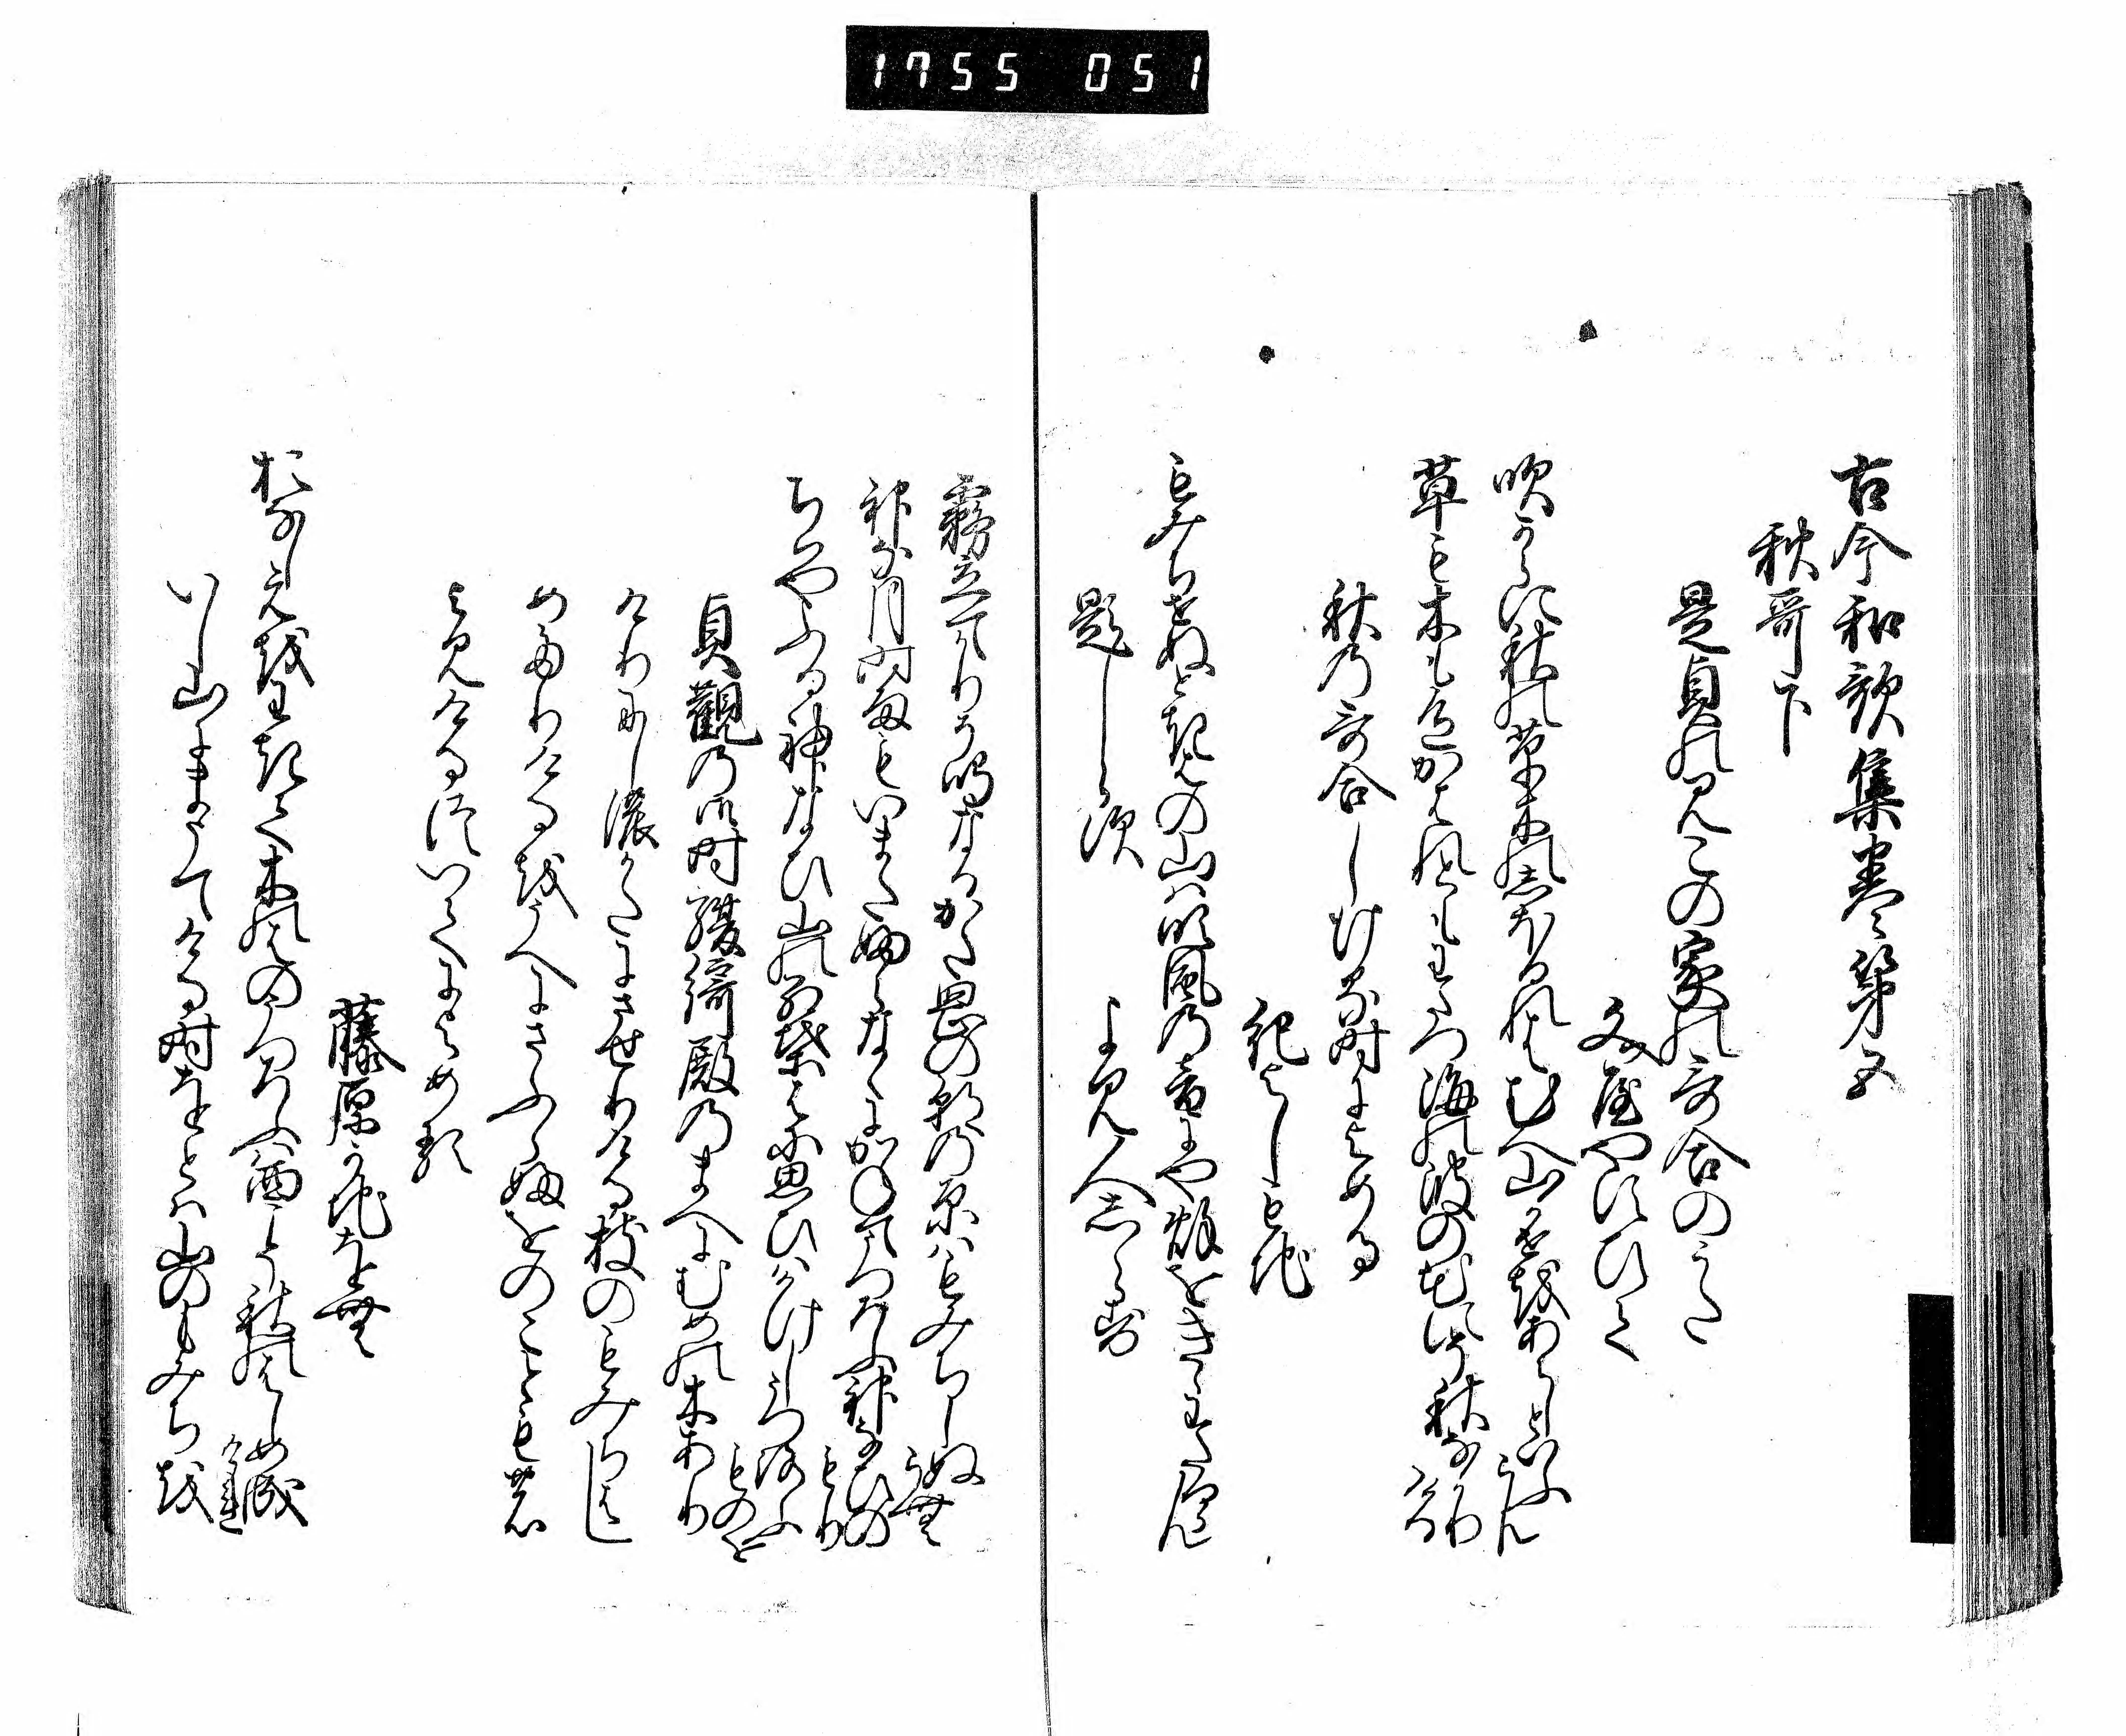 1755 051
古今和歌集巻第五
秋哥下
是貞のみこの家の哥合のうた
文屋やすひて
吹からに秋の草木のしほるれはむへ山かせをあらしといふらん
草も木も色かはれともわたつ海の波の花にそ秋なかりける
秋の哥合しける時によめる
紀よしもち
もみちせぬときはの山は吹風の音にや秋をきゝわたるらん
題しらす
よみ人しらす
霧立て鳫そ鳴なるかた岡の朝の原はもみちしぬらむ
神な月時雨もいまたふらなくにかねてうつろふ神なひのもり
ちはやふる神なひ山のもみち葉に思ひはかけしうつろふものを
貞観の御時綾綺殿のまへにむめの木あり
けりにしの方にさせりける枝のもみちはし
めたりけるをうへにさふらふをのこともの
よみけるついてによめる
藤原かちをむ
おなしえをわきて木のはのうつろふは西こそ秋のはしめ成けれ
いし山にまうてける時をとは山のもみちを